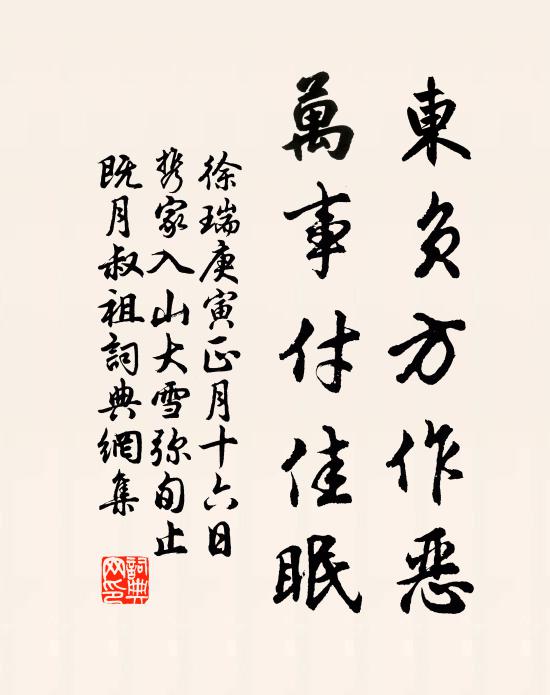 東负方作惡
萬事付佳眠
徐瑞庚寅正月十六日
携家入山大雪弥旬止
既月叔祖詞典網集
詞典
网印